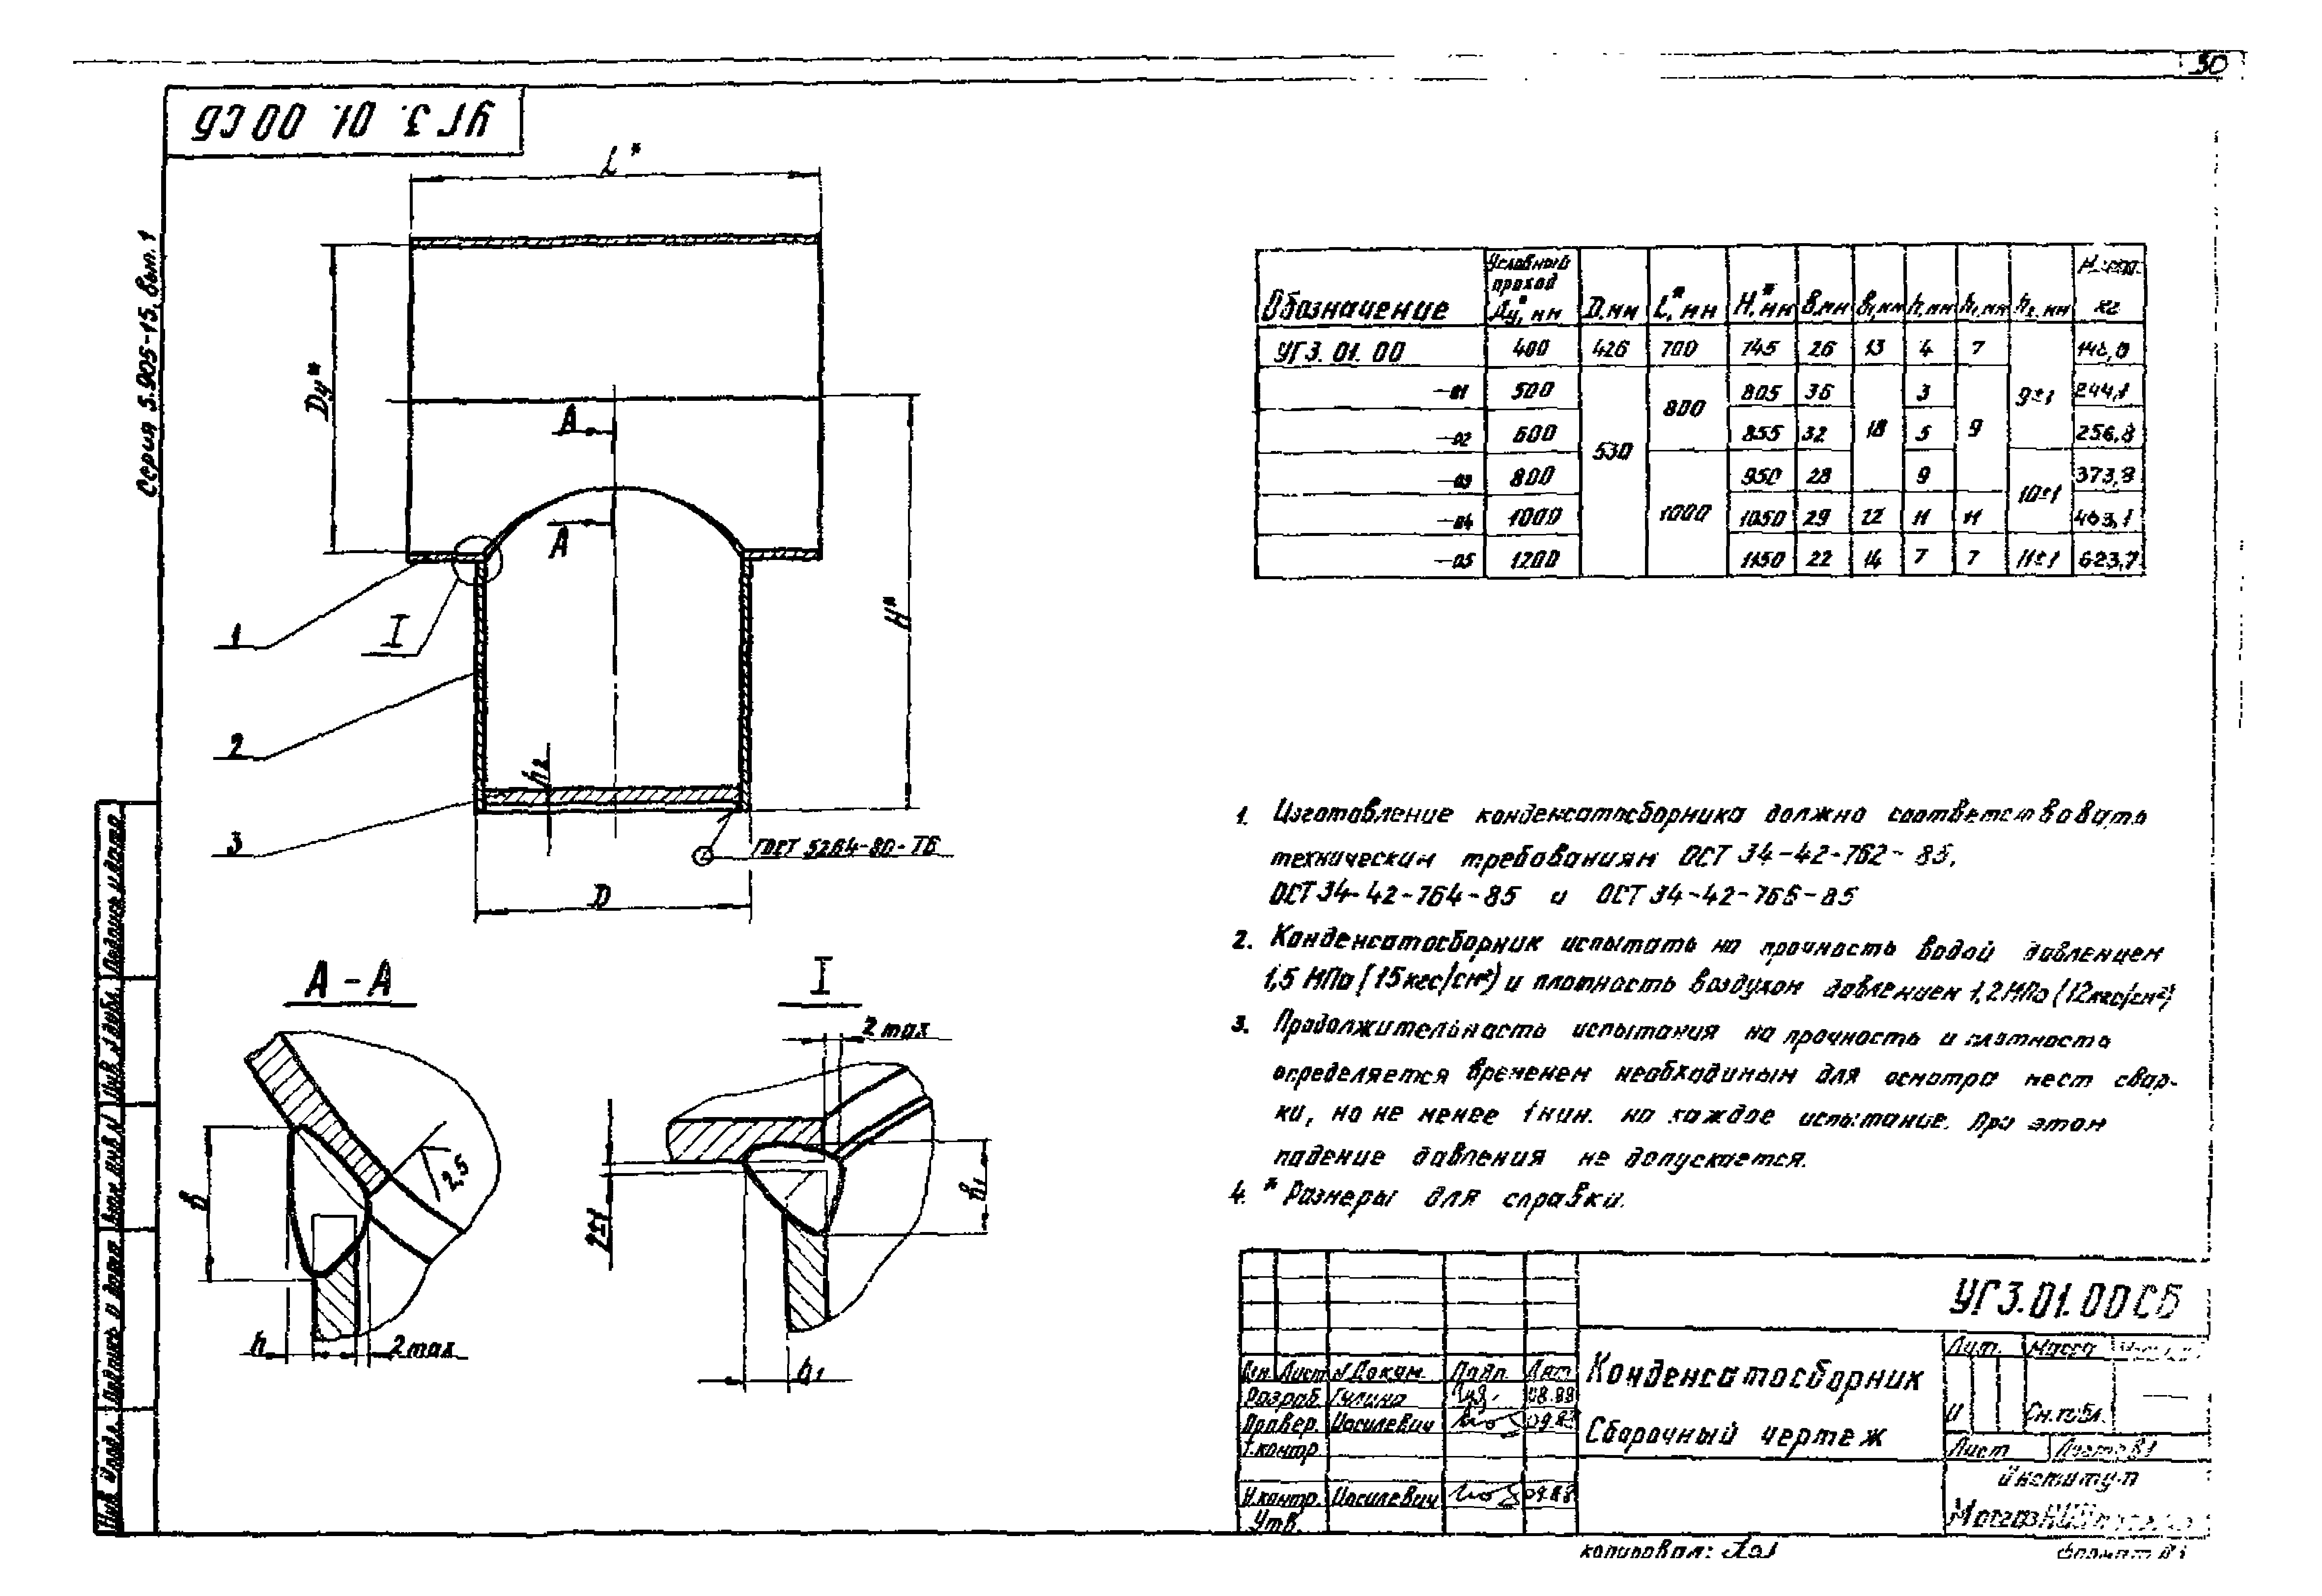 30
УГ 3. 01. 00 СБ
Серия 5.905-15. вып. 1
L*
Dу*
А
А
H*
1
I
2
h₂
3
ГОСТ 5264-80-Т6
D
А - А
I
2 max
2,5
в
в₁
2±1
h
2 max
h₁
Обозначение Условный проход Ду*, мм D, мм L*, мм H*, мм в, мм в₁, мм h, мм h₁, мм h₂, мм кг
УГ3. 01. 00 400 426 700 745 26 13 4 7
-01 500 530 800 805 36 18 3 9 9±1 244,1
-02 600 855 32 5 256,8
-03 800 1000 950 28 9 10±1 373,8
-04 1000 1050 29 22 11 11 463,1
-05 1200 1150 22 14 7 7 11±1 623,7
1. Изготовление конденсатосборника должно соответствовать
техническим требованиям ОСТ 34-42-762-85,
ОСТ 34-42-764-85 и ОСТ 34-42-766-85
2. Конденсатосборник испытать на прочность водой давлением
1,5 МПа (15кгс/см²) и плотность воздухом давлением 1,2МПа (12кгс/см²)
3. Продолжительность испытания на прочность и плотность
определяется временем необходимым для осмотра мест свар-
ки, но не менее 1 мин. на каждое испытание. При этом
падение давления не допускается.
4. * Размеры для справки.
УГ3.01.00СБ
Конденсатосборник
Сборочный чертеж
Лит. Масса
И См.табл.
Лист Листов 1
Институт
Изм. Лист N Докум. Подп. Дат
Разраб. Гулина 08.88
Провер. Иосилевич 09.88
Т.контр.
Н.контр. Иосилевич 09.88
Утв.
Инв. N подл. Подпись и дата Взам. инв. N Инв. N дубл. Подпись и дата
копировал: